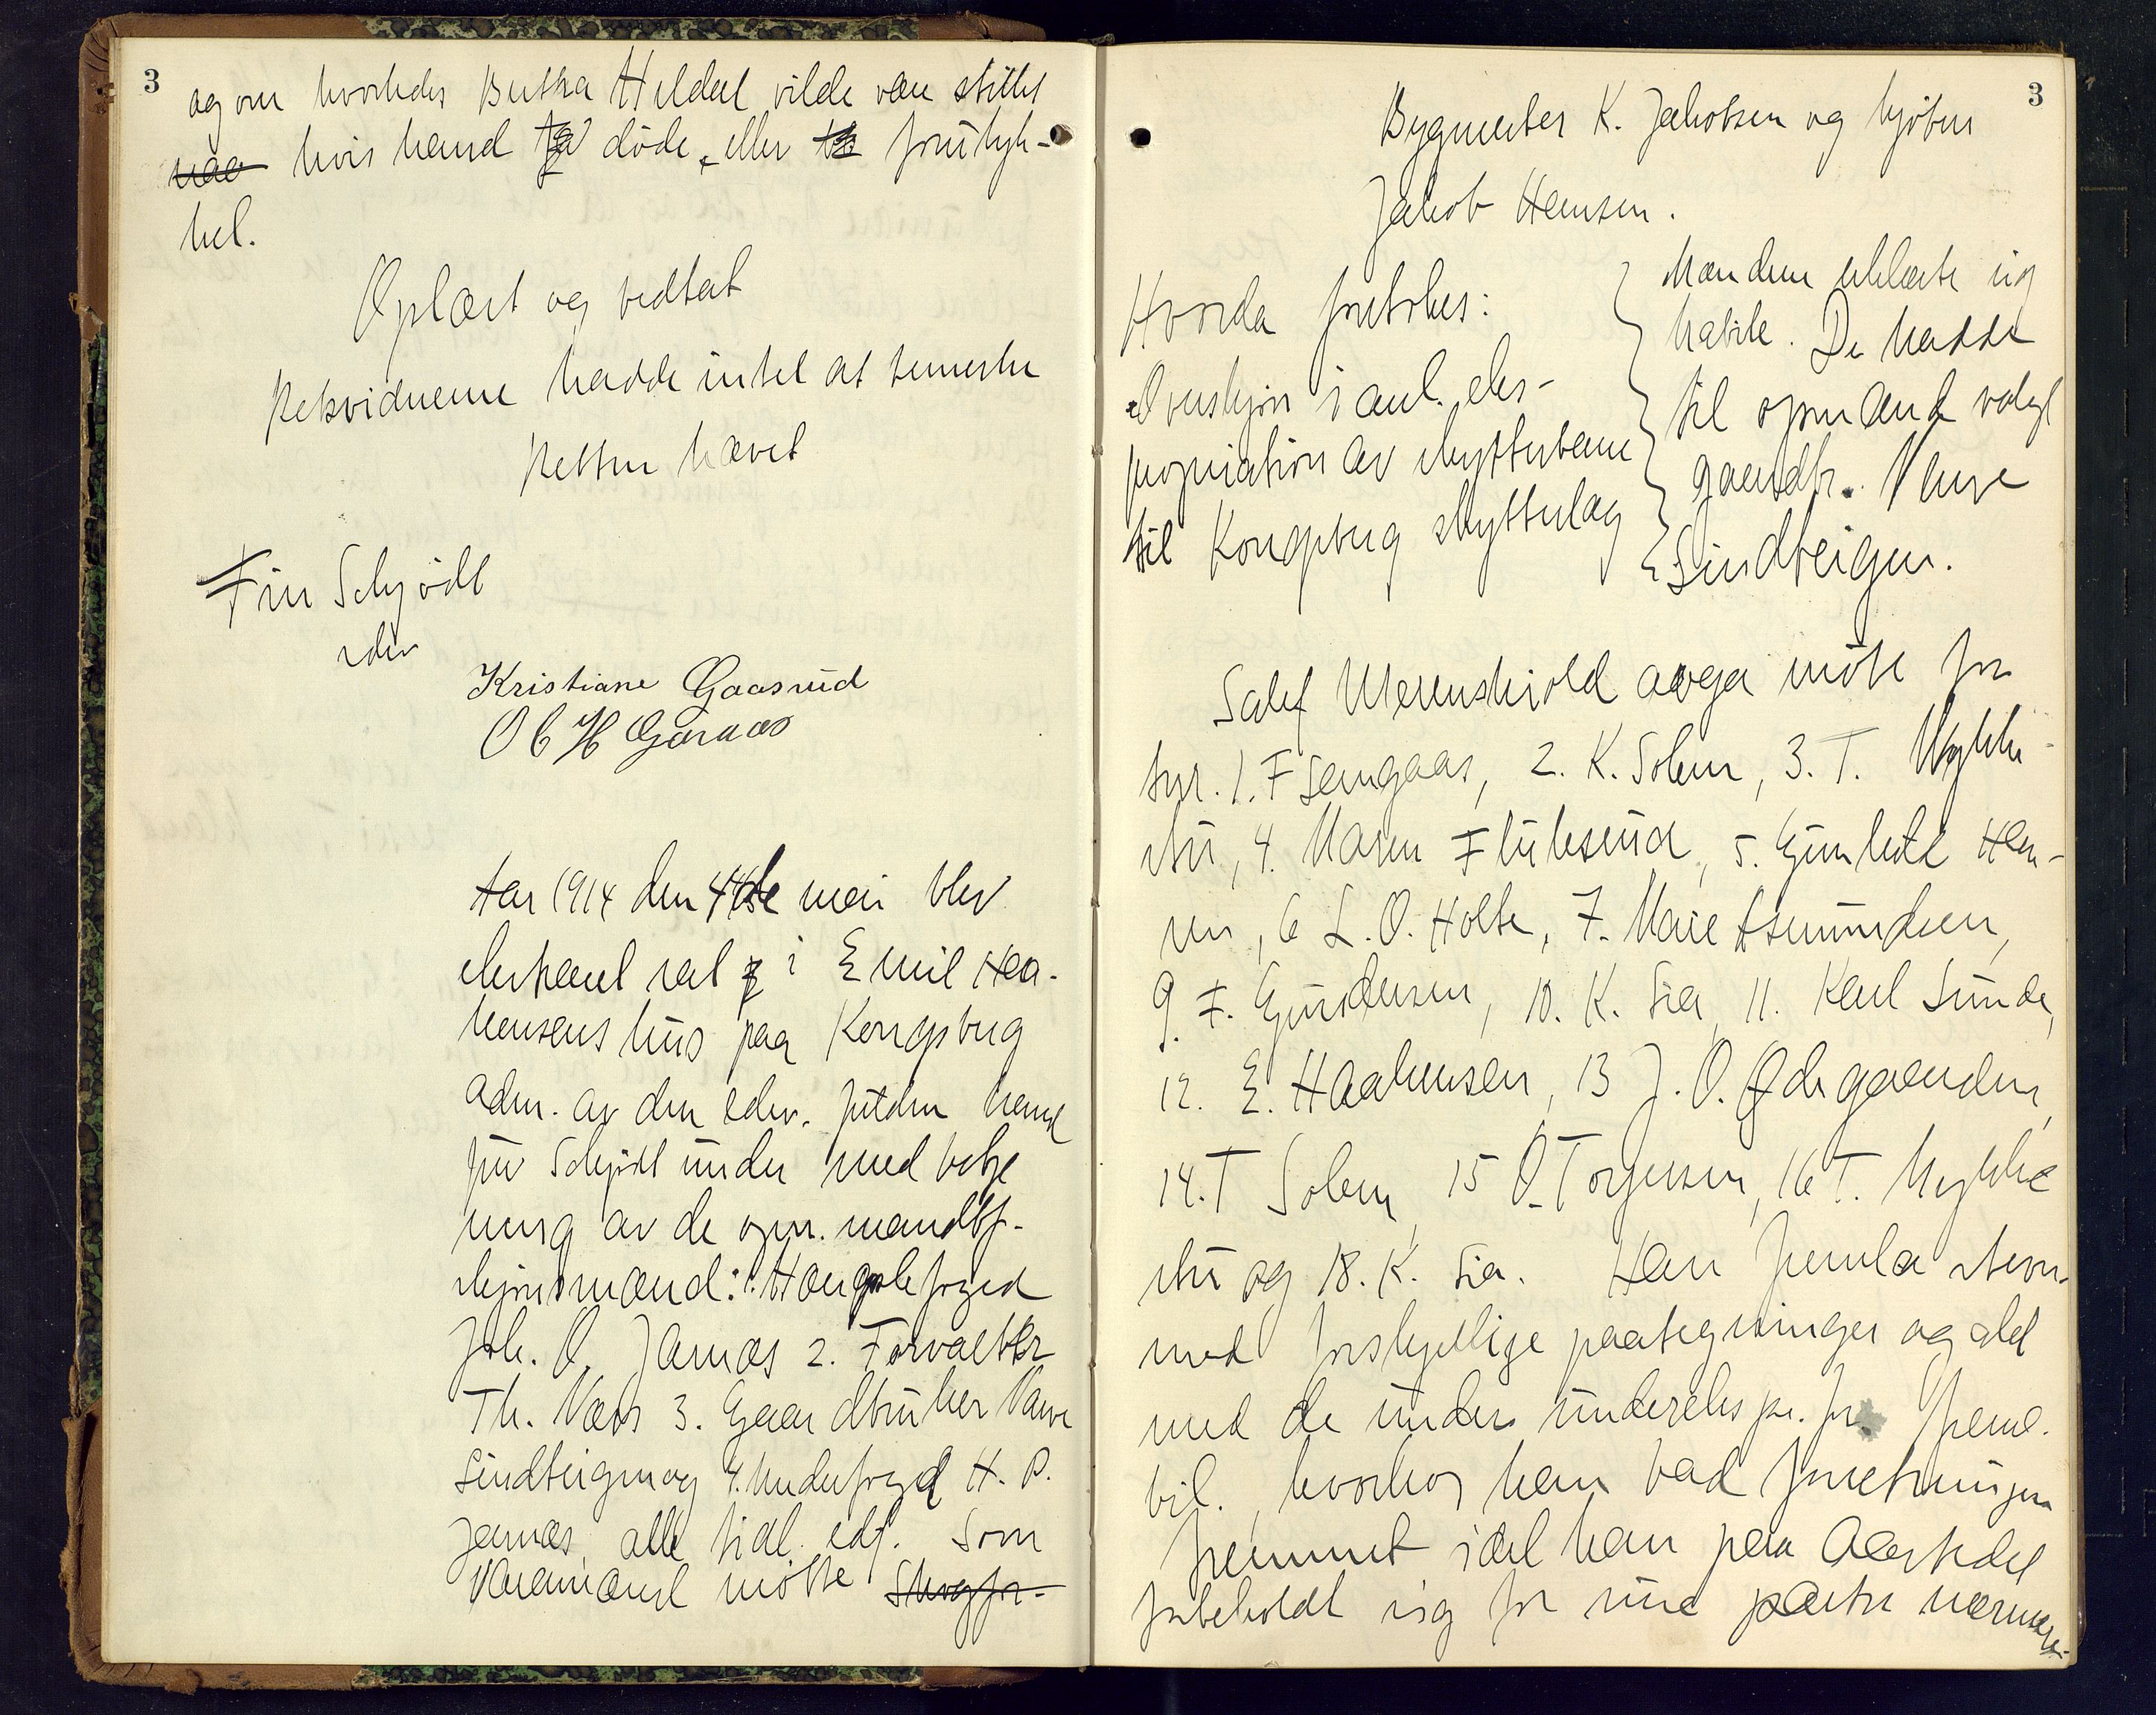 3
og om hvorledes Butra Heldal vilde være stillet
naa hvis hand døde, eller fruktyk-
kel.
Oplæst og vedtat
Rekvidnerne hadde intet at bemerke
Retten hævet
Fin Schjødt
edsv
Kristiane Gaasrud
O C H Garaas
Aar 1914 den 14de mai blev
ekstraret sat i Emil Haa-
kensens hus paa Kongsberg
adm. av den edsv. fuldm hand
Fin Schjødt under med betje
ning av de opn. mandtf.
skjønsmænd: 1. Hangslefoged
Joh. O. Jarnæs 2. Forvalter
Th. Næss 3. Gaardbruker Narve
Sindteigen og 4. Underfoged H. P.
Jarnæs, alle tidl. edf. Som
Varamænd møtte Skogfor-
3
Bygmester K. Jakobsen og kjøbm
Jakob Hansen.
Hvorda foretokes:
Overskjøn i anl. eks-
propriation av skytterbane
til Kongsberg skytterlag
Mændene erklærte sig
habile. De hadde
til opmand valgt
gaardbr. Narve
Sindteigen.
Sakf Werenskiold avga møte for
hrr. 1. F Samgaas, 2. K. Solem, 3. T. Mykle-
stu, 4. Maren Flukesrud, 5. Gunhild Han-
sen, 6 L. O. Holte, 7. Marie Asmundsen,
9. F. Gundersen, 10. K. Lia, 11. Karl Sunde,
12. E. Haakensen, 13 J. O. Ødegaarden,
14. T Solem, 15 O. Torgersen, 16 T. Mykle
stu og 18. K. Lia. Han fremla stevn.
med forskjellige paategninger og del
med de under underekspr. for freml.
bil., hvorhos han bad forretningen
fremmet idet han paa Aastedet
forbeholdt sig for sine parter nærmere